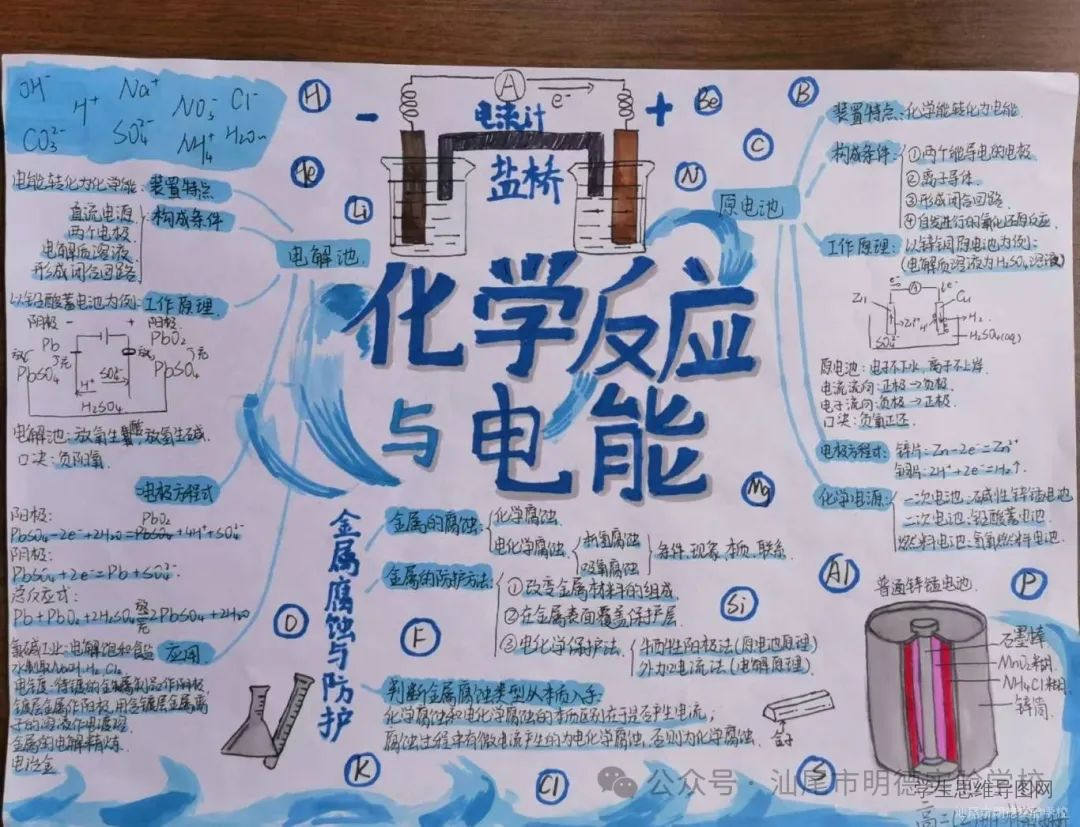 OH⁻ H⁺ Na⁺ NO₃⁻ Cl⁻
CO₃²⁻ SO₄²⁻ NH₄⁺ H₂O
电能转化为化学能：装置特点
直流电源
两个电极
电解质溶液
形成闭合回路
构成条件
电解池
以铅酸蓄电池为例：工作原理
阴极 - + 阳极
Pb PbO₂
PbSO₄ PbSO₄
H⁺ SO₄²⁻
H₂SO₄
口决：负阳氧
电极方程式
阳极：
PbO₂
PbSO₄-2e⁻+2H₂O=PbSO₄+4H⁺+SO₄²⁻
阴极：
PbSO₄+2e⁻=Pb+SO₄²⁻
总反应式：
Pb+PbO₂+2H₂SO₄ 2PbSO₄+2H₂O
应用
氯碱工业：电解饱和食盐
水制取NaOH、H₂、Cl₂
镀层金属作阳极，用含镀层金属离
子的溶液作电镀液
金属的电解精炼
电冶金
H
He
Li
Be
B
C
N
- A e⁻ +
电流计
盐桥
化学反应
与电能
原电池
装置特点：化学能转化为电能
构成条件：
①两个能导电的电极
②离子导体
③形成闭合回路
④自发进行的氧化还原反应
工作原理：以锌铜原电池为例：
(电解质溶液为H₂SO₄溶液)
e⁻ A e⁻
Zn Cu
Zn²⁺ H⁺ H₂
SO₄²⁻ H₂SO₄(aq)
原电池：电子不下水，离子不上岸
电流流向：正极→负极
电子流向：负极→正极
口决：负氧正还
电极方程式：锌片：Zn-2e⁻=Zn²⁺
铜片：2H⁺+2e⁻=H₂↑
化学电源：
一次电池：碱性锌锰电池
二次电池：铅酸蓄电池
燃料电池：氢氧燃料电池
金属腐蚀与防护
金属的腐蚀：
化学腐蚀
电化学腐蚀
析氢腐蚀
吸氧腐蚀
条件、现象、本质、联系
金属的防护方法：
①改变金属材料的组成
②在金属表面覆盖保护层
③电化学保护法
牺牲阳极法(原电池原理)
外加电流法(电解原理)
判断金属腐蚀类型从本质入手
化学腐蚀和电化学腐蚀的本质区别在于是否产生电流；
腐蚀过程中有微电流产生的为电化学腐蚀，否则为化学腐蚀
O
F
Mg
Al
Si
P
S
Cl
K
普通锌锰电池
石墨棒
锌筒
公众号·汕尾市明德实验学校
学生思维导图网